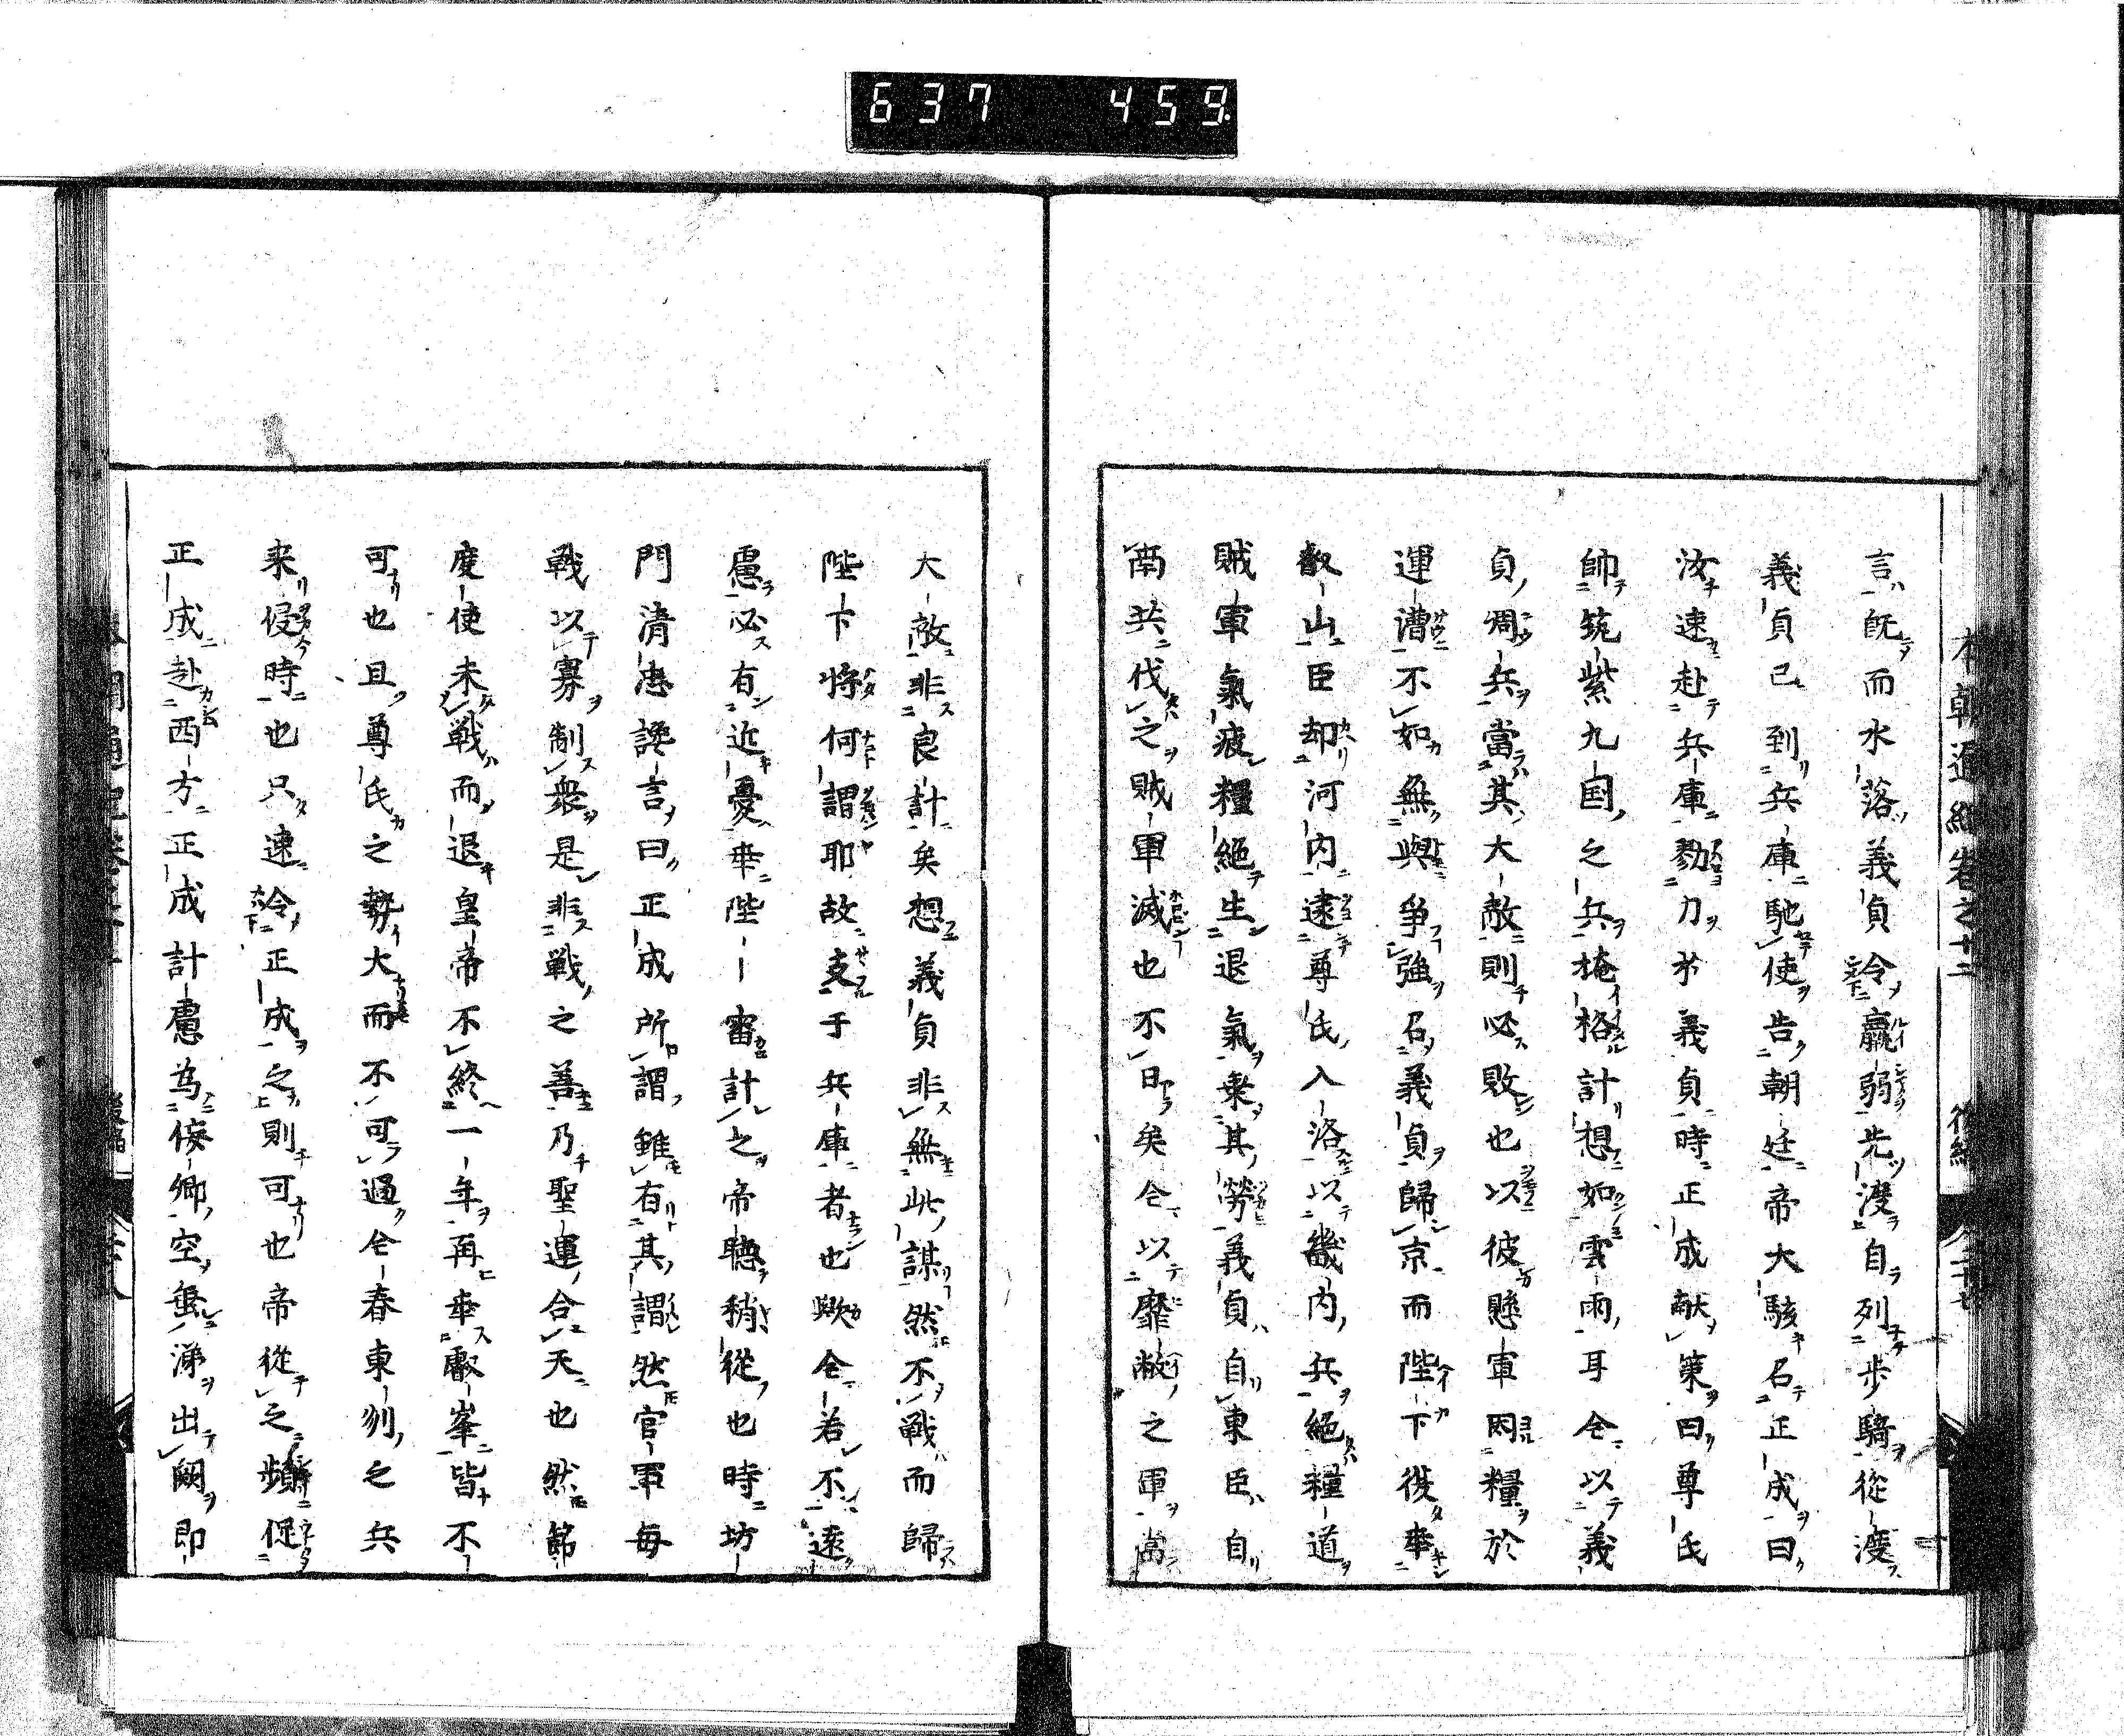 637 459
本朝通紀卷之十二
言既而水落義貞令羸弱先渡自列步騎從渡
義貞已到兵庫馳使告朝廷帝大駭召正成曰
汝速赴兵庫勠力於義貞時正成献策曰尊氏
帥筑紫九国之兵掩格計想如雲雨耳今以義
貞凋兵當其大敵則必敗也以彼懸軍悶糧於
運漕不如無與爭強召義貞歸京而陛下復幸
叡山臣却河内逮尊氏入洛以畿内兵絕糧道
賊軍氣疲糧絕生退氣乗其勞義貞自東臣自
南共伐之賊軍滅也不日矣今以靡敝之軍當
大敵非良計矣想義貞非無此謀然不戰而歸
陛下將何謂耶故支于兵庫者也歟今若不遠
慮必有近憂幸陛——審計之帝聴稍從也時坊
門清忠讒言曰正成所謂雖有其謂然官軍毎
戦以寡制衆是非戦之善乃聖運合天也然節
度使未戦而退皇帝不終一年再幸叡峯皆不
可也且尊氏之勢大而不可過今春東列之兵
来侵時也只速令正成之則可也帝從之頻促
正成赴西方正成計慮為倿卿空垂涕出闕即